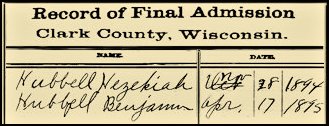 Record of Final Admission
Clark County, Wisconsin.
NAME. DATE.
Hubbell Hezekiah 28 1894
Hubbell Benjamin Apr. 17 1895